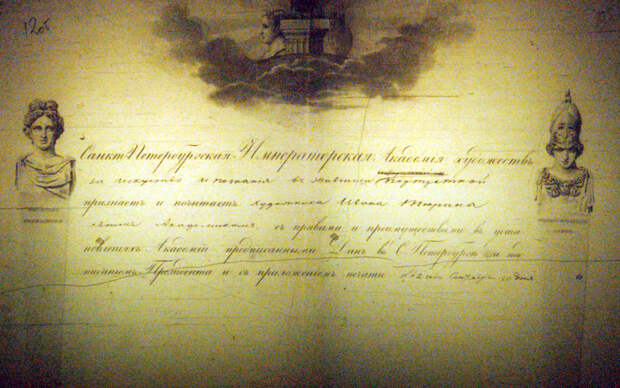 120б
Санктпетербургская Императорская Академія художествъ
за искусство и познанія въ живописи Портретной
признаетъ и почитаетъ художника Ивана Тюрина
своимъ Академикомъ, съ правами и преимуществами въ уста
новленіяхъ Академіи предписанными Данъ въ С. Петербургѣ за под
писаніемъ Президента и съ приложеніемъ печати Сентября дня